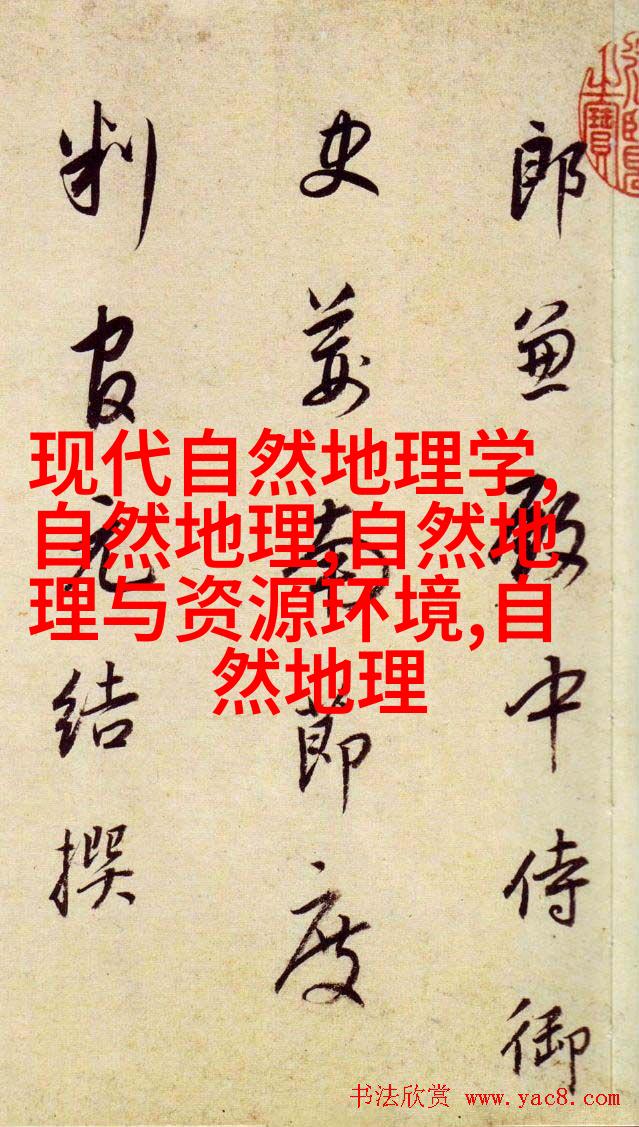 郎兼殿中侍御
史荊南節度
判官元結撰
现代自然地理学,
自然地理,自然地
理与资源环境,自
然地理
书法欣赏 www.yac8.com